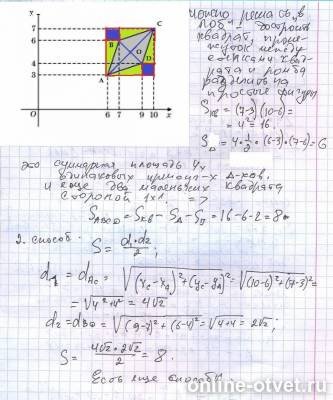 y
7
6
4
3
C
B
O
D
A
0
6 7 9 10 x
Можно решать в
лоб - достроить
квадрат, проме-
жуток между
квад-
рата и ромба
разделить на
простые фигуры
Sкв = (7-3)(10-6) =
= 4² = 16.
S△ = 4·½·(6-3)·(7-6) = 6
это суммарная площадь 4х
одинаковых прямоуг-х △-ков.
и еще два маленьких квадрата
стороной 1x1 =>
SABCD = Sкв - S△ - S□ = 16-6-2 = 8
2. способ.
S = d₁·d₂/2 ;
d₁ = dAC = √((xc-xA)²+(yc-yA)²) = √((10-6)²+(7-3)²) =
= √(4²+4²) = 4√2
d₂ = dBD = √((9-7)²+(6-4)²) = √(4+4) = 2√2 ;
S = 4√2·2√2/2 = 8.
Есть еще способы.
online-otvet.ru